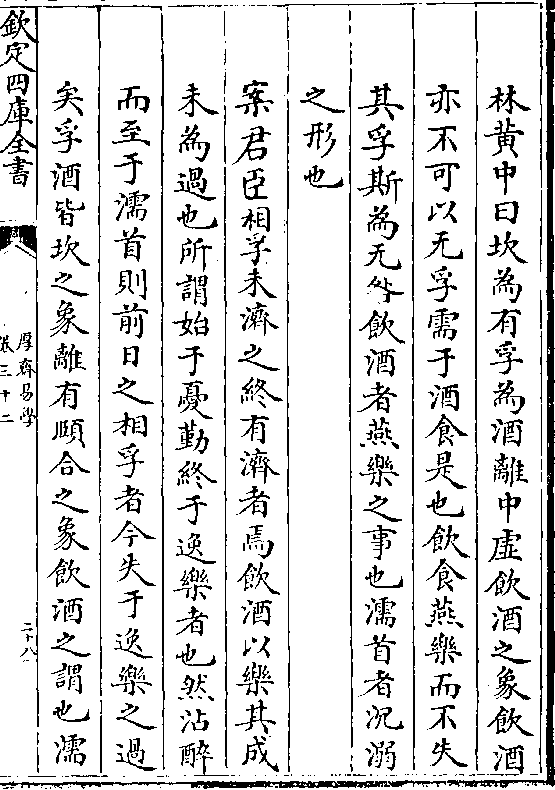 林黄中曰坎為有孚為酒離中虚飲酒之象飲酒
亦不可以无孚需于酒食是也飲食燕樂而不失
其孚斯為无咎飲酒者燕樂之事也濡首者沉溺
之形也
案君臣相孚未濟之終有濟者焉飲酒以樂其成
未為過也所謂始于憂勤終于逸樂者也然沾醉
而至于濡首則前日之相孚者今失于逸樂之過
矣孚酒皆坎之象離有頤合之象飲酒之謂也濡
欽定四庫全書
厚齋易學
卷三十二
二十八